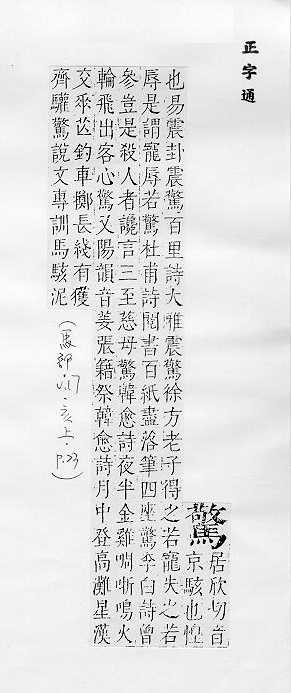 正字通
驚
居欣切音
京駭也惶
也易震卦震驚百里詩大雅震驚徐方老子得之若寵失之若
辱是謂寵辱若驚杜甫詩閱書百紙盡落筆四座驚李白詩曾
參豈是殺人者讒言三至慈母驚韓愈詩夜半金雞啁哳鳴火
輪飛出客心驚又陽韻音姜張籍祭韓愈詩月中登高灘星漢
交𠂹芒釣車擲長綫有獲
齊驩驚說文專訓馬駭泥
(馬部.v.17.亥上.p.23)